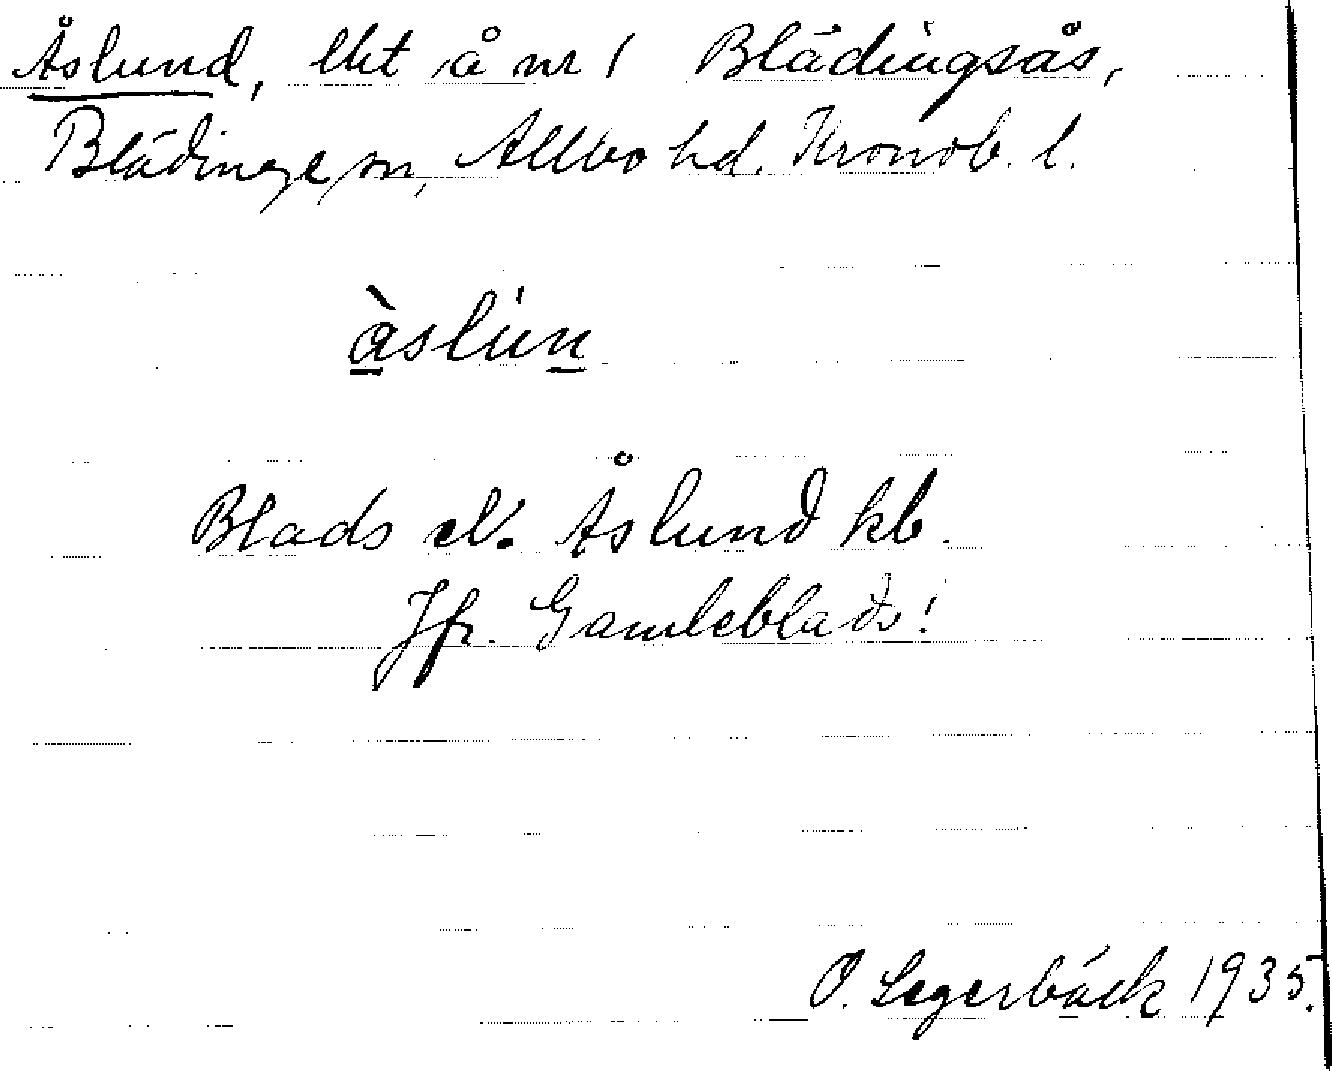 Åslund, lht å nr 1 Blädingsås,
Blädinge sn, Allbo hd. Kronob. l.
àslún
Blads el. Åslund kb.
Jfr. Gamleblads!
O. Legerbäck 1935.